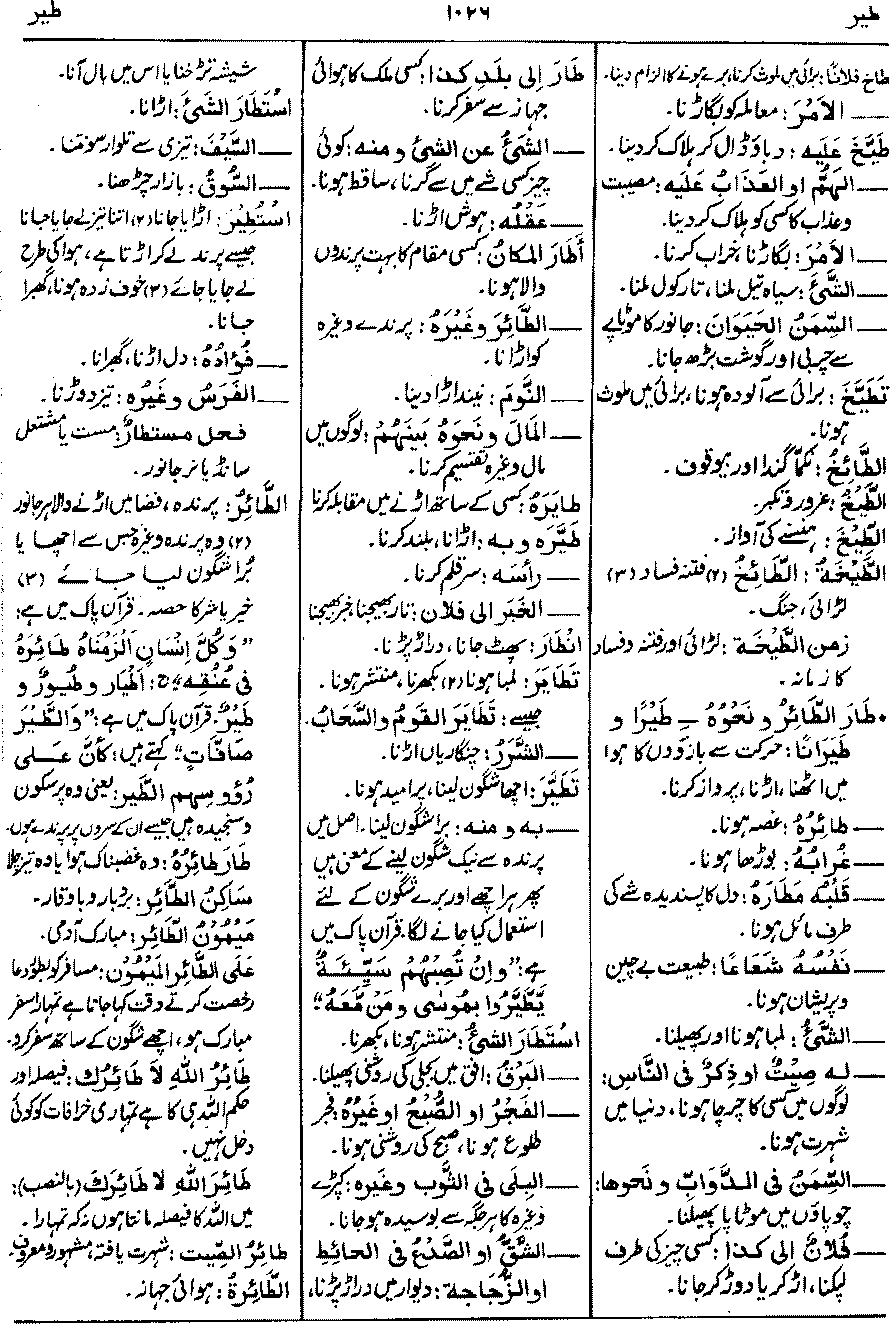 طیر
۱۰۲۶
طیر
طاخ فلانًا: برائی میں ملوث کرنا، برے ہونے کا الزام دینا۔
— الأمْرَ: معاملہ کو بگاڑنا۔
طَيَّخَ عليه: دباؤ ڈال کر ہلاک کر دینا۔
— الهَمُّ او العَذَابُ عليه: مصیبت
وعذاب کا کسی کو ہلاک کر دینا۔
— الأمْرَ: بگاڑنا، خراب کرنا۔
— الشَّئَ: سیاہ تیل ملنا، تارکول ملنا۔
— السِّمَنُ الحَيَوَانَ: جانور کا موٹاپے
سے چربی اور گوشت بڑھ جانا۔
تَطَيَّخَ: برائی سے آلودہ ہونا، برائی میں ملوث
ہونا۔
الطَّائِخُ: نکمّا گندا اور بیوقوف۔
الطَّيْخُ: غرور و تکبر۔
الطِّيْخُ: ہنسنے کی آواز۔
الطَّيْخَةُ: الطَّائِخُ (۲) فتنہ فساد (۳)
لڑائی، جنگ۔
زمن الطَّيْخَة: لڑائی اور فتنہ و فساد
کا زمانہ۔
• طَارَ الطَّائِرُ و نَحْوُهُ — طَيْرًا و
طَيَرَانًا: حرکت سے بازوؤں کا ہوا
میں اٹھنا، اڑنا، پرواز کرنا۔
— طائِرُهُ: غصہ ہونا۔
— غُرَابُهُ: بوڑھا ہونا۔
— قَلْبُه مَطَارَهُ: دل کا پسندیدہ شے کی
طرف مائل ہونا۔
— نَفْسُهُ شَعَاعًا: طبیعت بے چین
و پریشان ہونا۔
— الشَّئُ: لمبا ہونا اور پھیلنا۔
— له صِيْتٌ او ذِكْرٌ فی النَّاسِ:
لوگوں میں کسی کا چرچا ہونا، دنیا میں
شہرت ہونا۔
— السِّمَنُ فی الدَّوَابِّ و نَحوها:
چوپاؤں میں موٹاپا پھیلنا۔
— فُلانٌ الی كذا: کسی چیز کی طرف
لپکنا، اڑ کر یا دوڑ کر جانا۔
طَارَ إلى بلَدِ كذا: کسی ملک کا ہوائی
جہاز سے سفر کرنا۔
— الشئُ عن الشئ و منه: کوئی
چیز کسی شے میں سے گرنا، ساقط ہونا۔
— عقْلُه: ہوش اڑنا۔
أطَارَ المكانُ: کسی مقام کا بہت پرندوں
والا ہونا۔
— الطَّائِرَ وغَيْرَهُ: پرندے وغیرہ
کو اڑانا۔
— النَّومَ: نیند اڑا دینا۔
— المَالَ و نَحوَهُ بَيْنَهُمْ: لوگوں میں
مال وغیرہ تقسیم کرنا۔
طايَرَهُ: کسی کے ساتھ اڑنے میں مقابلہ کرنا
طَيَّرَه و به: اڑانا، بلند کرنا۔
— رأسَه: سر قلم کرنا۔
— الخَبَرَ الی فلان: تار بھیجنا، خبر بھیجنا
انْطَارَ: پھٹ جانا، دراڑ پڑنا۔
تَطَايَرَ: لمبا ہونا (۲) بکھرنا، منتشر ہونا۔
جیسے: تَطَايَرَ القَومُ والسَّحَابُ۔
— الشَّرَرُ: چنگاریاں اڑنا۔
تَطَيَّرَ: اچھا شگون لینا، پرامید ہونا۔
— به و منه: برا شگون لینا۔ اصل میں
پرندہ سے نیک شگون لینے کے معنی ہیں
پھر ہر اچھے اور برے شگون کے لئے
استعمال کیا جانے لگا۔ قرآن پاک میں
ہے: “وَاِنْ تُصِبْهُمْ سَيِّئَةٌ
يَّطَّيَّرُوا بِمُوسٰى ومَن مَّعَهُ”
استَطَارَ الشئُ: منتشر ہونا، بکھرنا۔
— البَرْقُ: افق میں بجلی کی روشنی پھیلنا۔
— الفَجْرُ او الصُّبْحُ او غَيْرُهُ: فجر
طلوع ہونا، صبح کی روشنی ہونا۔
— البِلَى فی الثَّوب وغيره: کپڑے
وغیرہ کا ہر جگہ سے بوسیدہ ہو جانا۔
— الشَّقُّ او الصَّدْعُ فی الحائِطِ
او الزُّجَاجة: دیوار میں دراڑ پڑنا،
شیشہ تڑخنا یا اس میں بال آنا۔
اسْتَطَارَ الشَّئَ: اڑانا۔
— السَّيْفَ: تیزی سے تلوار سونتنا۔
— السُّوقُ: بازار چڑھنا۔
اسْتُطِيْرَ: اڑایا جانا (۲) اتنا تیز لے جایا جانا
جیسے پرندے لے کر اڑتا ہے، ہوا کی طرح
لے جایا جائے (۳) خوف زدہ ہونا، گھبرا
جانا۔
— فُؤَادُهُ: دل اڑنا، گھبرانا۔
— الفَرَسُ وغَيرُه: تیز دوڑنا۔
فحل مستطارٌ: مست یا مشتعل
سانڈ یا نر جانور۔
الطَّائِرُ: پرندہ، فضا میں اڑنے والا ہر جانور
(۲) وہ پرندہ وغیرہ جس سے اچھا یا
بُرا شگون لیا جائے (۳)
خیر یا شر کا حصہ۔ قرآن پاک میں ہے:
“وَكُلَّ إنْسَانٍ اَلْزَمْنَاهُ طَائِرَهُ
فِی عُنُقِه” ج: أطْيَار و طُيُورٌ و
طَيْرٌ۔ قرآن پاک میں ہے: “وَالطَّيْرُ
صَافَّاتٍ” کہتے ہیں: كأنَّ عَلى
رُؤوسِهِم الطَّيرَ: یعنی وہ پرسکون
و سنجیدہ ہیں جیسے ان کے سروں پر پرندے ہوں۔
طَارَ طَائِرُهُ: وہ غضبناک ہوا یا وہ تیز چلا
سَاكِنُ الطَّائِرِ: بردبار و باوقار۔
مَيْمُوْنُ الطَّائِرِ: مبارک آدمی۔
عَلَى الطَّائِرِ المَيْمُوْنِ: مسافر کو بطور دعا
رخصت کرتے وقت کہا جاتا ہے تمہارا سفر
مبارک ہو، اچھے شگون کے ساتھ سفر کرو۔
طَائِرُ اللّهِ لَا طَائِرُكَ: فیصلہ اور
حکم اللہ ہی کا ہے تمہاری خرافات کو کوئی
دخل نہیں۔
طَائِرَ اللّهِ لا طَائِرَكَ (بالنصب):
میں اللہ کا فیصلہ مانتا ہوں نہ کہ تمہارا۔
طائِرُ الصِّيت: شہرت یافتہ، مشہور و معروف۔
الطَّائِرَةُ: ہوائی جہاز۔